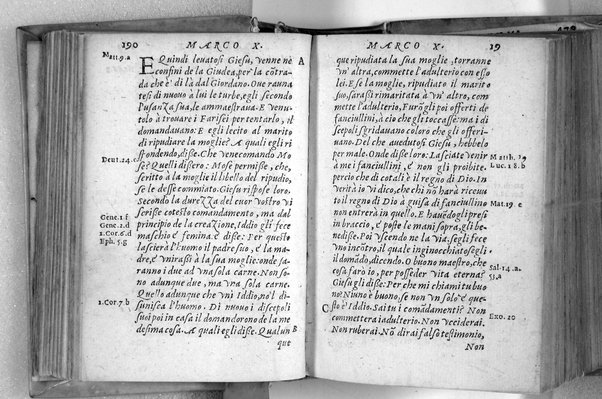 190 MARCO X.
Matt.9.a
E Quindi leuatosi Giesu, venne nè A
confini de la Giudea, per la cōtra-
da che è di là dal Giordano. Oue rauna
tesi di nuouo à lui le turbe, egli secondo
l'usanza sua, le ammaestraua. E venu-
olo à trouare i Farisei per tentarlo, il
domandauano: E egli lecito al marito
di ripudiare la moglie? A quali egli ri
Deut.24.
spondendo, disse. Che vene comando Mo
se? Quelli dissero: Mose permisse, che,
scritto à la moglie il libello del ripudio,
se le desse commiato. Giesu rispose loro.
Secondo la durezza del cuor vostro vi
scrisse cotesto comandamento, ma dal
Gene.1.f
principio de la creazione, Iddio gli fece
Gene.2.d
maschio e femina è disse: Per questo
1.Cor.6.d
lascierà l'huomo il padre suo, e la ma-
Eph.5.g
dre, e vnirassi à la sua moglie: onde sa-
ranno i due ad vna sola carne. Non so-
no adunque due, ma vna sola carne.
Quello adunque che vnì Iddio, nol di-
1.Cor.7.b
sunisca l'huomo. Di nuouo i discepoli
suoi poi in casa il domandorono de la me
desima cosa. A quali egli disse. Qualun B
que
MARCO X. 19
que ripudiata la sua moglie, torranne
vn'altra, commette l'adulterio con esso
lei. E se la moglie, ripudiato il marito
suo, sarassi rimaritata à vn'altro, com
mette l'adulterio. Furōgli poi offerti de
fanciullini, à ciò che gli toccasse: ma i di
scepoli sgridauano coloro che gli offeri-
uano. Del che auedutosi Giesu, hebbelo
per male. Onde disse loro: Lasciate venir
Matth.19
à me i fanciullini, e non gli proibite.
Luc.18.b
percio che di cotali è il regno di Dio. In
verità io vi dico, che chi nō harà riceuu
Mat.19
to il regno di Dio à guisa di fanciullino
non entrerà in quello. E hauēdogli presi
in braccio, e poste le mani sopra, gli be-
nedisse. Poi vscendo ne la via, segli fece
vno incōtro, il quale inginocchiatosegli
il domādò, dicendo. O buono maestro, che
Sal.14.a.
cosa farò io, per posseder vita eterna?
53.a
Giesu gli disse: Per che mi chiami tu buo
no? Niuno è buono, se non vn solo è que-
C sto è Iddio. Sai tu i comādamenti? Non
Exo.20
commettera i adulterio. Non vcciderai.
Non ruberai. Nō dirai falso testimonio,
Non